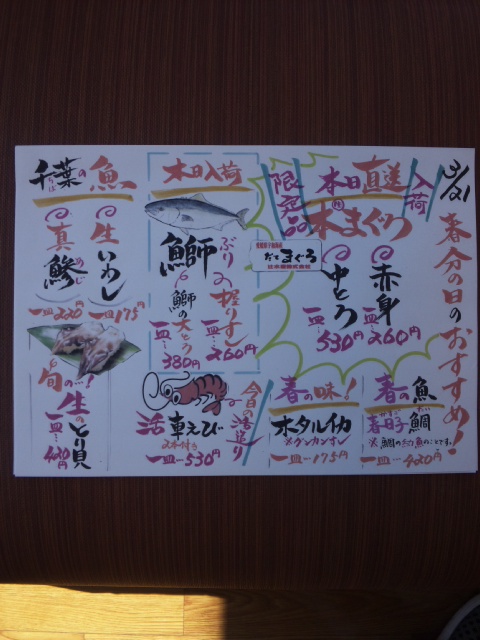 3/21 春分の日のおすすめ!
本日直送
入荷
限定品
本まぐろ
赤身
一皿…260円
中とろ
一皿…530円
だてまぐろ
本日入荷
鰤
ぶり
の握りすし
一皿…260円
鰤の大とろ
一皿…380円
千葉の魚
ちば
生いわし
一皿175円
真鯵
あじ
一皿220円
春の魚
春日子鯛
※鯛の幼魚のことです。
一皿…420円
春の味!
ホタルイカ
※グンカンオンリー
一皿…175円
今日の活造り
活車えび
2本付き
一皿…530円
旬の…!
生とり貝
一皿…420円